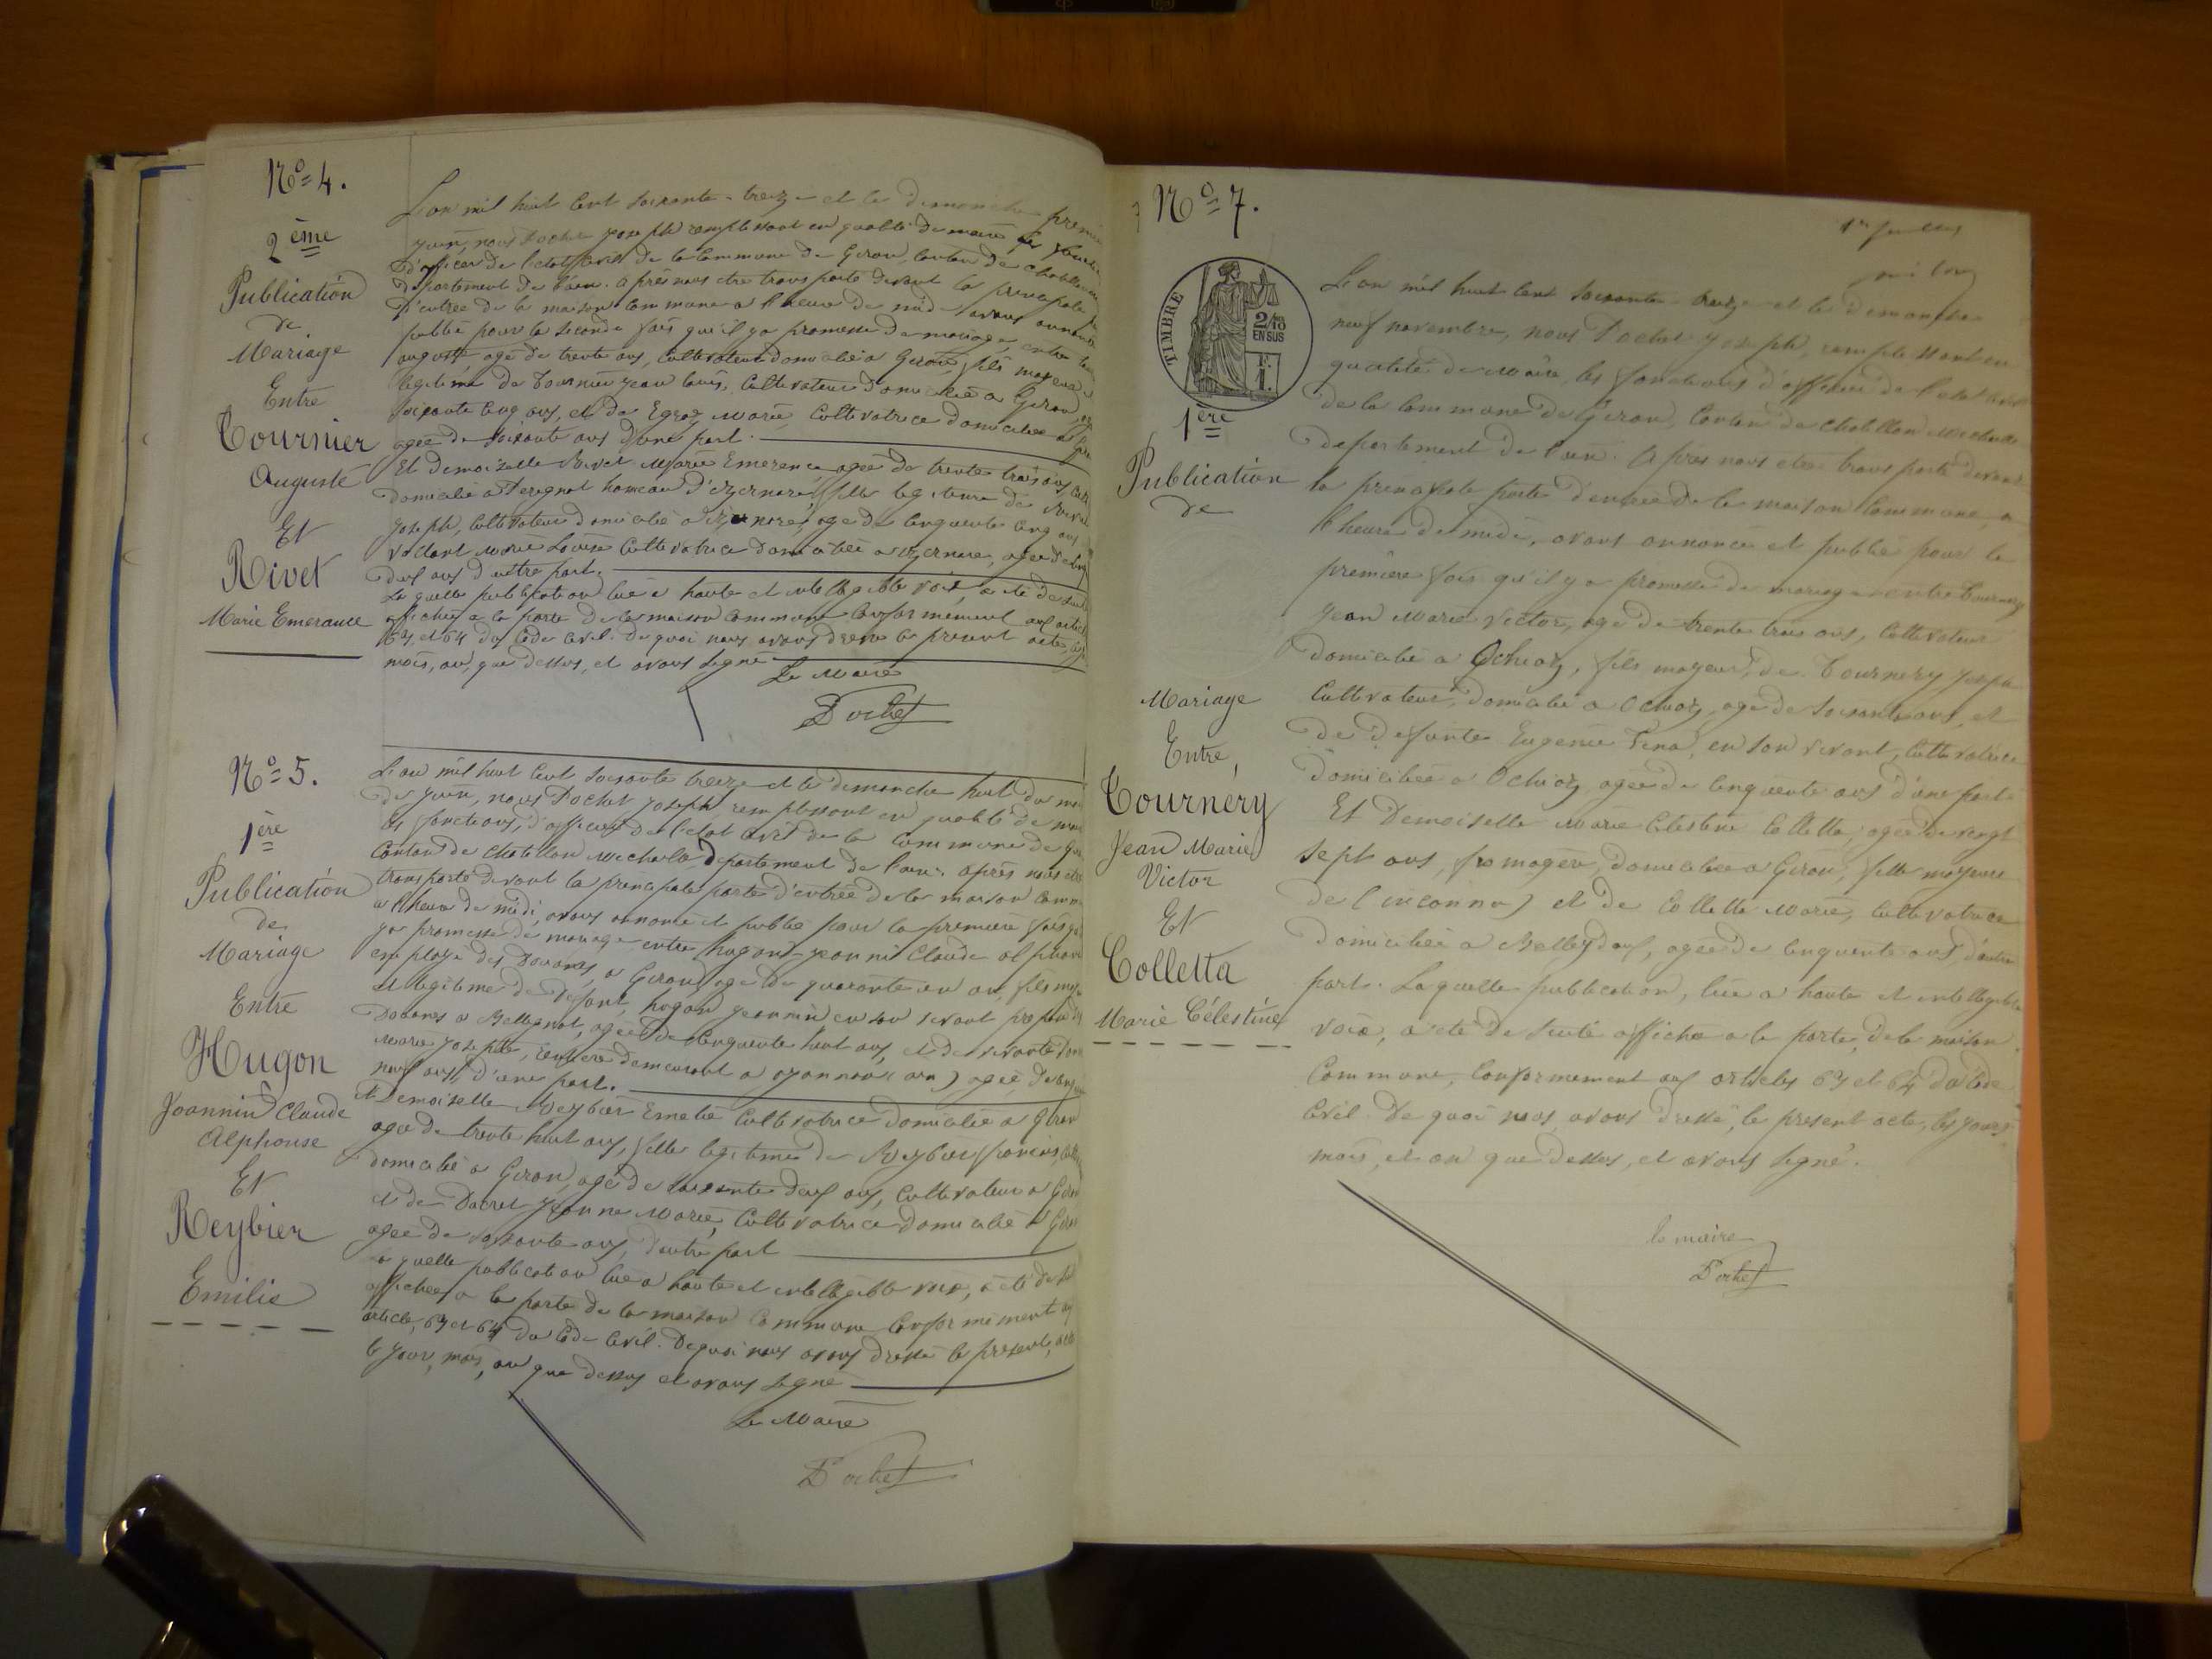 No 4.
2ème
Publication
de
Mariage
Entre
Tournier
Auguste
Et
Rivet
Marie Emerance
L'an mil huit cent soixante-treize et le dimanche premier
juin, nous Pochet joseph remplissant en qualité de maire les
d'officier de l'état civil de la commune de Giron, canton de Chatillon
département de l'ain. après nous être transporté devant la principale
d'entrée de la maison commune a l'heure de midi avons annoncé
publié pour la seconde fois qu'il y a promesse de mariage, entre
auguste agé de trente ans, cultivateur domicilié a Giron, fils majeur
légitime de Tournier jean louis, cultivateur domicilié a Giron,
soixante cinq ans, et de Egraz Marie cultivatrice domiciliée a
agée de soixante ans d'une part.
Et Demoiselle Rivet Marie Emerence agée de trente trois ans
domicilié a Perignat hameau d'izernore, fille legitime de Rivet
joseph, cultivateur domicilié a izernore, agé de cinquante cinq ans
Marie Louise cultivatrice domiciliée a izernore, agée de
deux ans d'autre part.
Laquelle publication lue a haute et intelligible voix, a été de suite
affichée a la porte de la maison commune conformément aux
63 et 64 du Code civil. De quoi nous avons dressé le présent acte,
mois, an, que dessus, et avons signé
Le Maire
Pochet
No 5.
1ère
Publication
de
Mariage
Entre
Hugon
Joannin Claude
Alphonse
Et
Reybier
Emilie
L'an mil huit cent soixante treize et le dimanche huit du mois
de juin, nous Pochet joseph, remplissant en qualité de maire
les fonctions, d'officier de l'etat civil de la Commune de
Canton de Chatillon Michaille Département de l'ain. après nous être
transporté devant la principale porte d'entrée de la maison
a l'heure de midi, avons annoncé et publié pour la première fois
y a promesse de mariage entre hugon joannin Claude alphonse
employé des Douanes, a Giron, agé de quarante un an, fils
et légitime de défunt, hugon joannin en son vivant préposé
Douanes a Bellegnat, agée de cinquante huit ans, et de
Marie josephte, demeurant a oyonnax (ain) agée de
neuf ans, d'une part.
Et Demoiselle Reybier Emelie cultivatrice domiciliée a Giron
agée de trente huit ans, fille legitime de Reybier
domicilié a Giron, agé de soixante deux ans, Cultivateur a Giron
et de Dacret jeanne Marie, cultivatrice domiciliée a Giron
agée de soixante ans, d'autre part
Laquelle publication lue a haute et intelligible voix, a été de
affichée a la porte de la maison Commune conformément
article 63 et 64 du Code Civil. De quoi nous avons dressé le présent, acte
le jour, mois, an que dessus et avons signé
Le Maire
Pochet
No 7.
TIMBRE
2/10
EN SUS
F.
1.
1ère
Publication
de
Mariage
Entre,
Tournery
Jean Marie
Victor
Et
Colletta
Marie Célestine
L'an mil huit cent soixante-treize et le dimanche
neuf novembre, nous Pochet joseph, remplissant en
qualité de Maire, les fonctions d'officier de l'etat civil
de la Commune de Giron, Canton de Chatillon Michaille
département de l'ain. après nous etre transporté devant
la principale porte d'entrée de la maison Commune, a
l'heure de midi, avons annoncé et publié pour la
première fois qu'il y a promesse de mariage entre Tournery
jean Marie Victor, agé de trente trois ans, cultivateur
domicilié a Ochiaz, fils majeur, de Tournery
Cultivateur, domicilié a Ochiaz, agé de soixante ans, et
de defunte Eugenie en son vivant, cultivatrice
domiciliée a Ochiaz, agée de cinquante ans d'une part.
Et Demoiselle Marie Celestine Colletta, agée de vingt
sept ans, domiciliée a Giron, fille majeure
de (inconnu) et de Colletta Marie, cultivatrice
domiciliée a Belleydoux, agée de cinquante ans, d'autre
part. Laquelle publication, lue a haute et intelligible
voix, a été de suite affiché a la porte, de la maison
Commune, conformement aux articles 63 et 64 du Code
Civil. De quoi nous, avons dressé, le présent acte, les jours
mois, et an que dessus, et avons signé.
le maire
Pochet